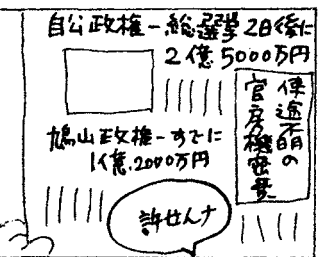 自公政権ー総選挙2日後に
2億5000万円
使途不明の
官房機密費
鳩山政権ーすでに
1億.2000万円
許せんナ